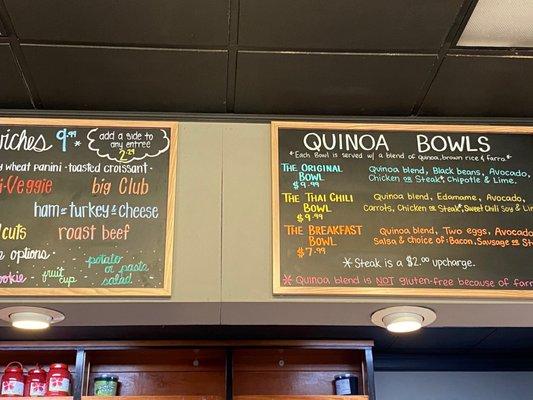 wiches 9.99 *
add a side to
any entree
2.29
wheat panini · toasted croissant ·
-Veggie big Club
ham & turkey & cheese
cuts roast beef
options
cookie fruit cup potato or pasta salad
QUINOA BOWLS
*Each Bowl is served w/ a blend of quinoa, brown rice & farro.*
THE ORIGINAL BOWL $9.99
Quinoa blend, Black beans, Avocado,
Chicken or Steak*, Chipotle & Lime.
THE THAI CHILI BOWL $9.99
Quinoa blend, Edamame, Avocado,
Carrots, Chicken or Steak*, Sweet Chili Soy & Lim
THE BREAKFAST BOWL $7.99
Quinoa blend, Two eggs, Avocado
Salsa & choice of: Bacon, Sausage or St
*Steak is a $2.00 upcharge.
*Quinoa blend is NOT gluten-free because of farr